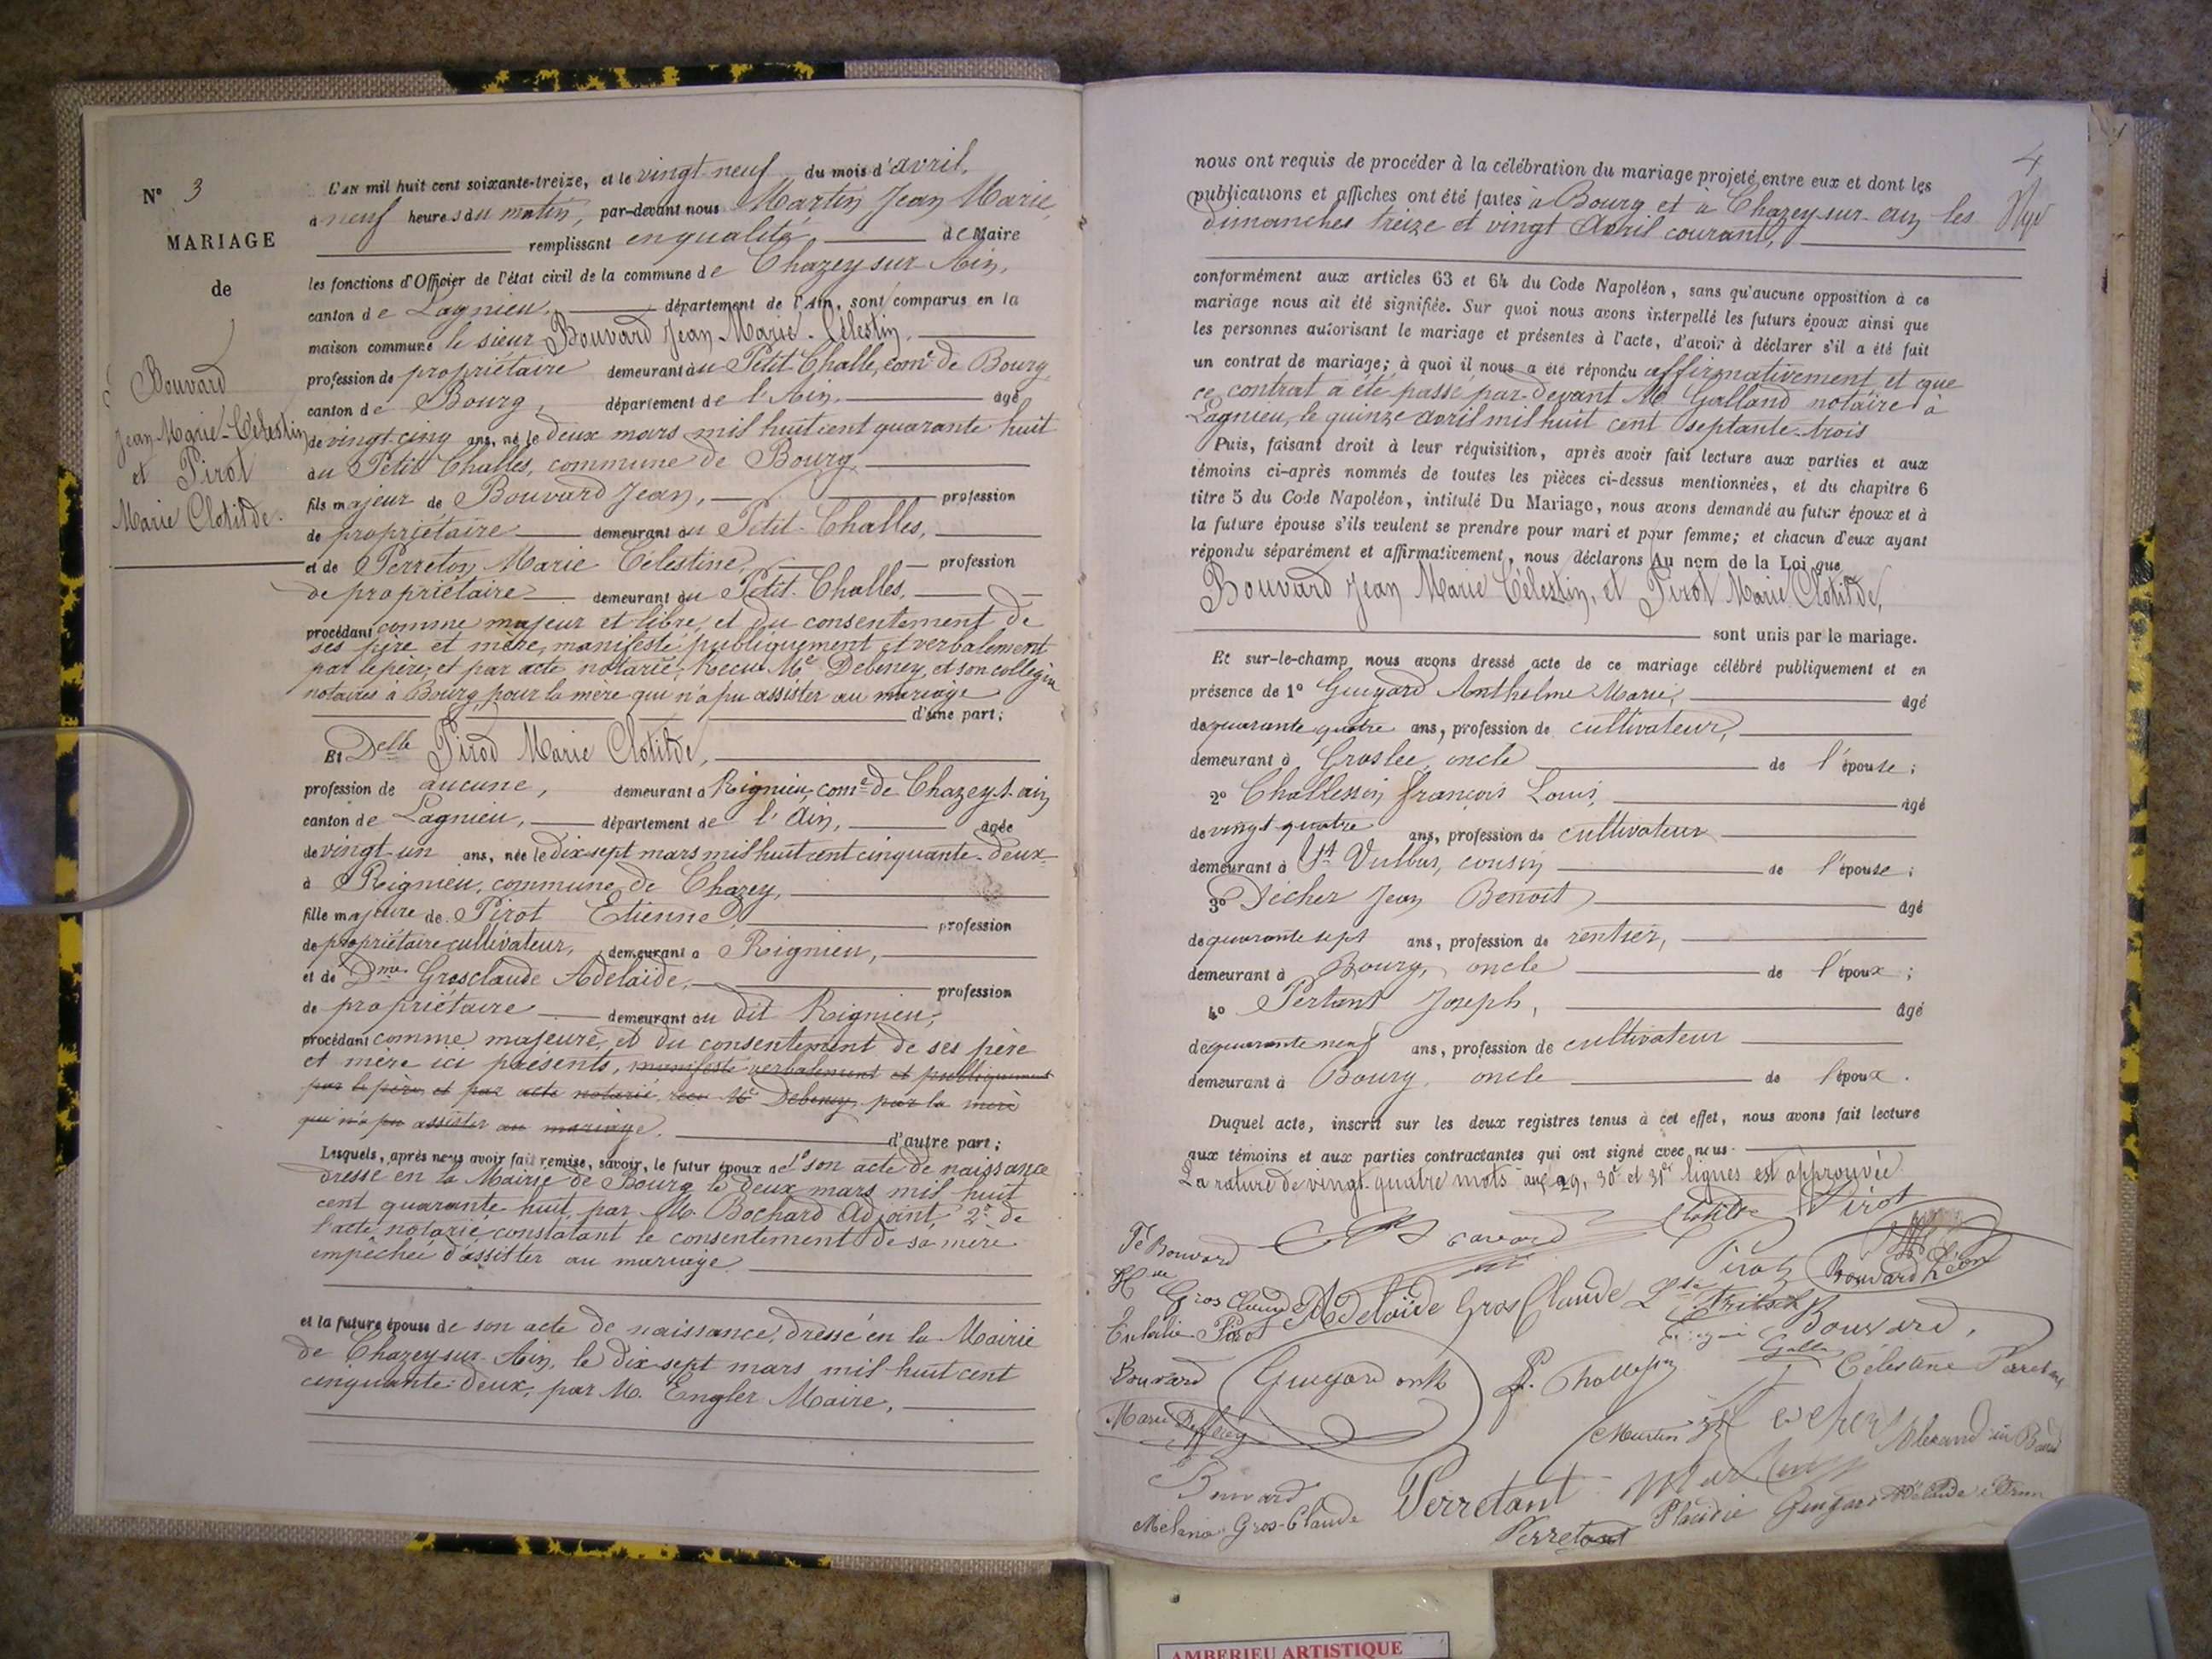 N° 3
MARIAGE
de
Bouvard
Jean-Marie-Célestin
et Pirot
Marie Clotilde.
L'AN mil huit cent soixante-treize, et le vingt neuf du mois d'avril,
à neuf heures du matin, par-devant nous Martin Jean Marie,
remplissant en qualité de Maire
les fonctions d'Officier de l'état civil de la commune de Chazey sur Ain,
canton de Lagnieu, département de l'Ain, sont comparus en la
maison commune le sieur Bouvard Jean-Marie-Célestin,
profession de propriétaire demeurant au Petit Challe, come de Bourg
canton de Bourg, département de l'Ain. agé
de vingt-cinq ans, né le deux mars mil huit cent quarante huit
au Petit Challes, commune de Bourg
fils majeur de Bouvard Jean, profession
de propriétaire demeurant au Petit-Challes,
et de Perreton Marie Célestine, profession
de propriétaire demeurant au Petit-Challes,
procédant comme majeur et libre, et du consentement de
ses père et mère, manifesté publiquement et verbalement
par le père, et par acte notarié, Reçu Me Debeney, et son collègue
notaires à Bourg, pour la mère qui n'a pu assister au mariage
d'une part;
Et Delle Pirod Marie Clotilde,
profession de aucune, demeurant à Rignieu, come de Chazey s. ain
canton de Lagnieu, département de l'Ain, agée
de vingt-un ans, née le dix-sept mars mil huit cent cinquante-deux
à Rignieu, commune de Chazey,
fille majeure de Pirot Etienne, profession
de propriétaire cultivateur, demeurant à Rignieu,
et de Dme Grosclaude Adelaïde, profession
de propriétaire demeurant au dit Rignieu,
procédant comme majeure, et du consentement de ses père
et mère ici présents, manifesté verbalement et publiquement
par le père, et par acte notarié, reçu Me Debeney, par la mère
qui n'a pu assister au mariage.
d'autre part;
Lesquels, après nous avoir fait remise, savoir, le futur époux de 1° son acte de naissance
dressé en la Mairie de Bourg le deux mars mil huit
cent quarante huit, par M. Bochard Adjoint, 2° de
l'acte notarié constatant le consentement de sa mère
empêchée d'assister au mariage
et la future épouse de son acte de naissance, dressé en la Mairie
de Chazey sur Ain, le dix-sept mars mil huit cent
cinquante-deux, par M. Engler Maire,
4
nous ont requis de procéder à la célébration du mariage projeté entre eux et dont les
publications et affiches ont été faites à Bourg et à Chazey sur ain les
dimanches treize et vingt Avril courant,
conformément aux articles 63 et 64 du Code Napoléon, sans qu'aucune opposition à ce
mariage nous ait été signifiée. Sur quoi nous avons interpellé les futurs époux ainsi que
les personnes autorisant le mariage et présentes à l'acte, d'avoir à déclarer s'il a été fait
un contrat de mariage; à quoi il nous a été répondu affirmativement et que
ce contrat a été passé par-devant Me Galland notaire à
Lagnieu, le quinze avril mil huit cent septante-trois
Puis, faisant droit à leur réquisition, après avoir fait lecture aux parties et aux
témoins ci-après nommés de toutes les pièces ci-dessus mentionnées, et du chapitre 6
titre 5 du Code Napoléon, intitulé Du Mariage, nous avons demandé au futur époux et à
la future épouse s'ils veulent se prendre pour mari et pour femme; et chacun d'eux ayant
répondu séparément et affirmativement, nous déclarons Au nom de la Loi que
Bouvard Jean Marie Célestin, et Pirot Marie Clotilde,
sont unis par le mariage.
Et sur-le-champ nous avons dressé acte de ce mariage célébré publiquement et en
présence de 1° Guygard Anthelme Marie, agé
de quarante quatre ans, profession de cultivateur,
demeurant à Groslée, oncle de l'épouse;
2° Challessin François Louis, agé
de vingt quatre ans, profession de cultivateur
demeurant à St Vulbas, cousin de l'épouse;
3° Décher Jean Benoit agé
de quarante sept ans, profession de rentier,
demeurant à Bourg, oncle de l'époux;
4° Pertant Joseph, agé
de quarante neuf ans, profession de cultivateur
demeurant à Bourg, oncle de l'époux.
Duquel acte, inscrit sur les deux registres tenus à cet effet, nous avons fait lecture
aux témoins et aux parties contractantes qui ont signé avec nous.
La rature de vingt-quatre mots aux 29, 30e et 31e lignes est approuvée
Clotilde Pirot
Bouvard
Pirot
Bouvard Léon
Gros Claude Adelaïde Gros Claude
Eulalie Pirot
Bouvard,
Bouvard Guygard
Célestine
Marie
Martin
Bouvard
Perretant
Mélanie Gros-Claude
Perretant
Placidie Guygard
AMBERIEU ARTISTIQUE